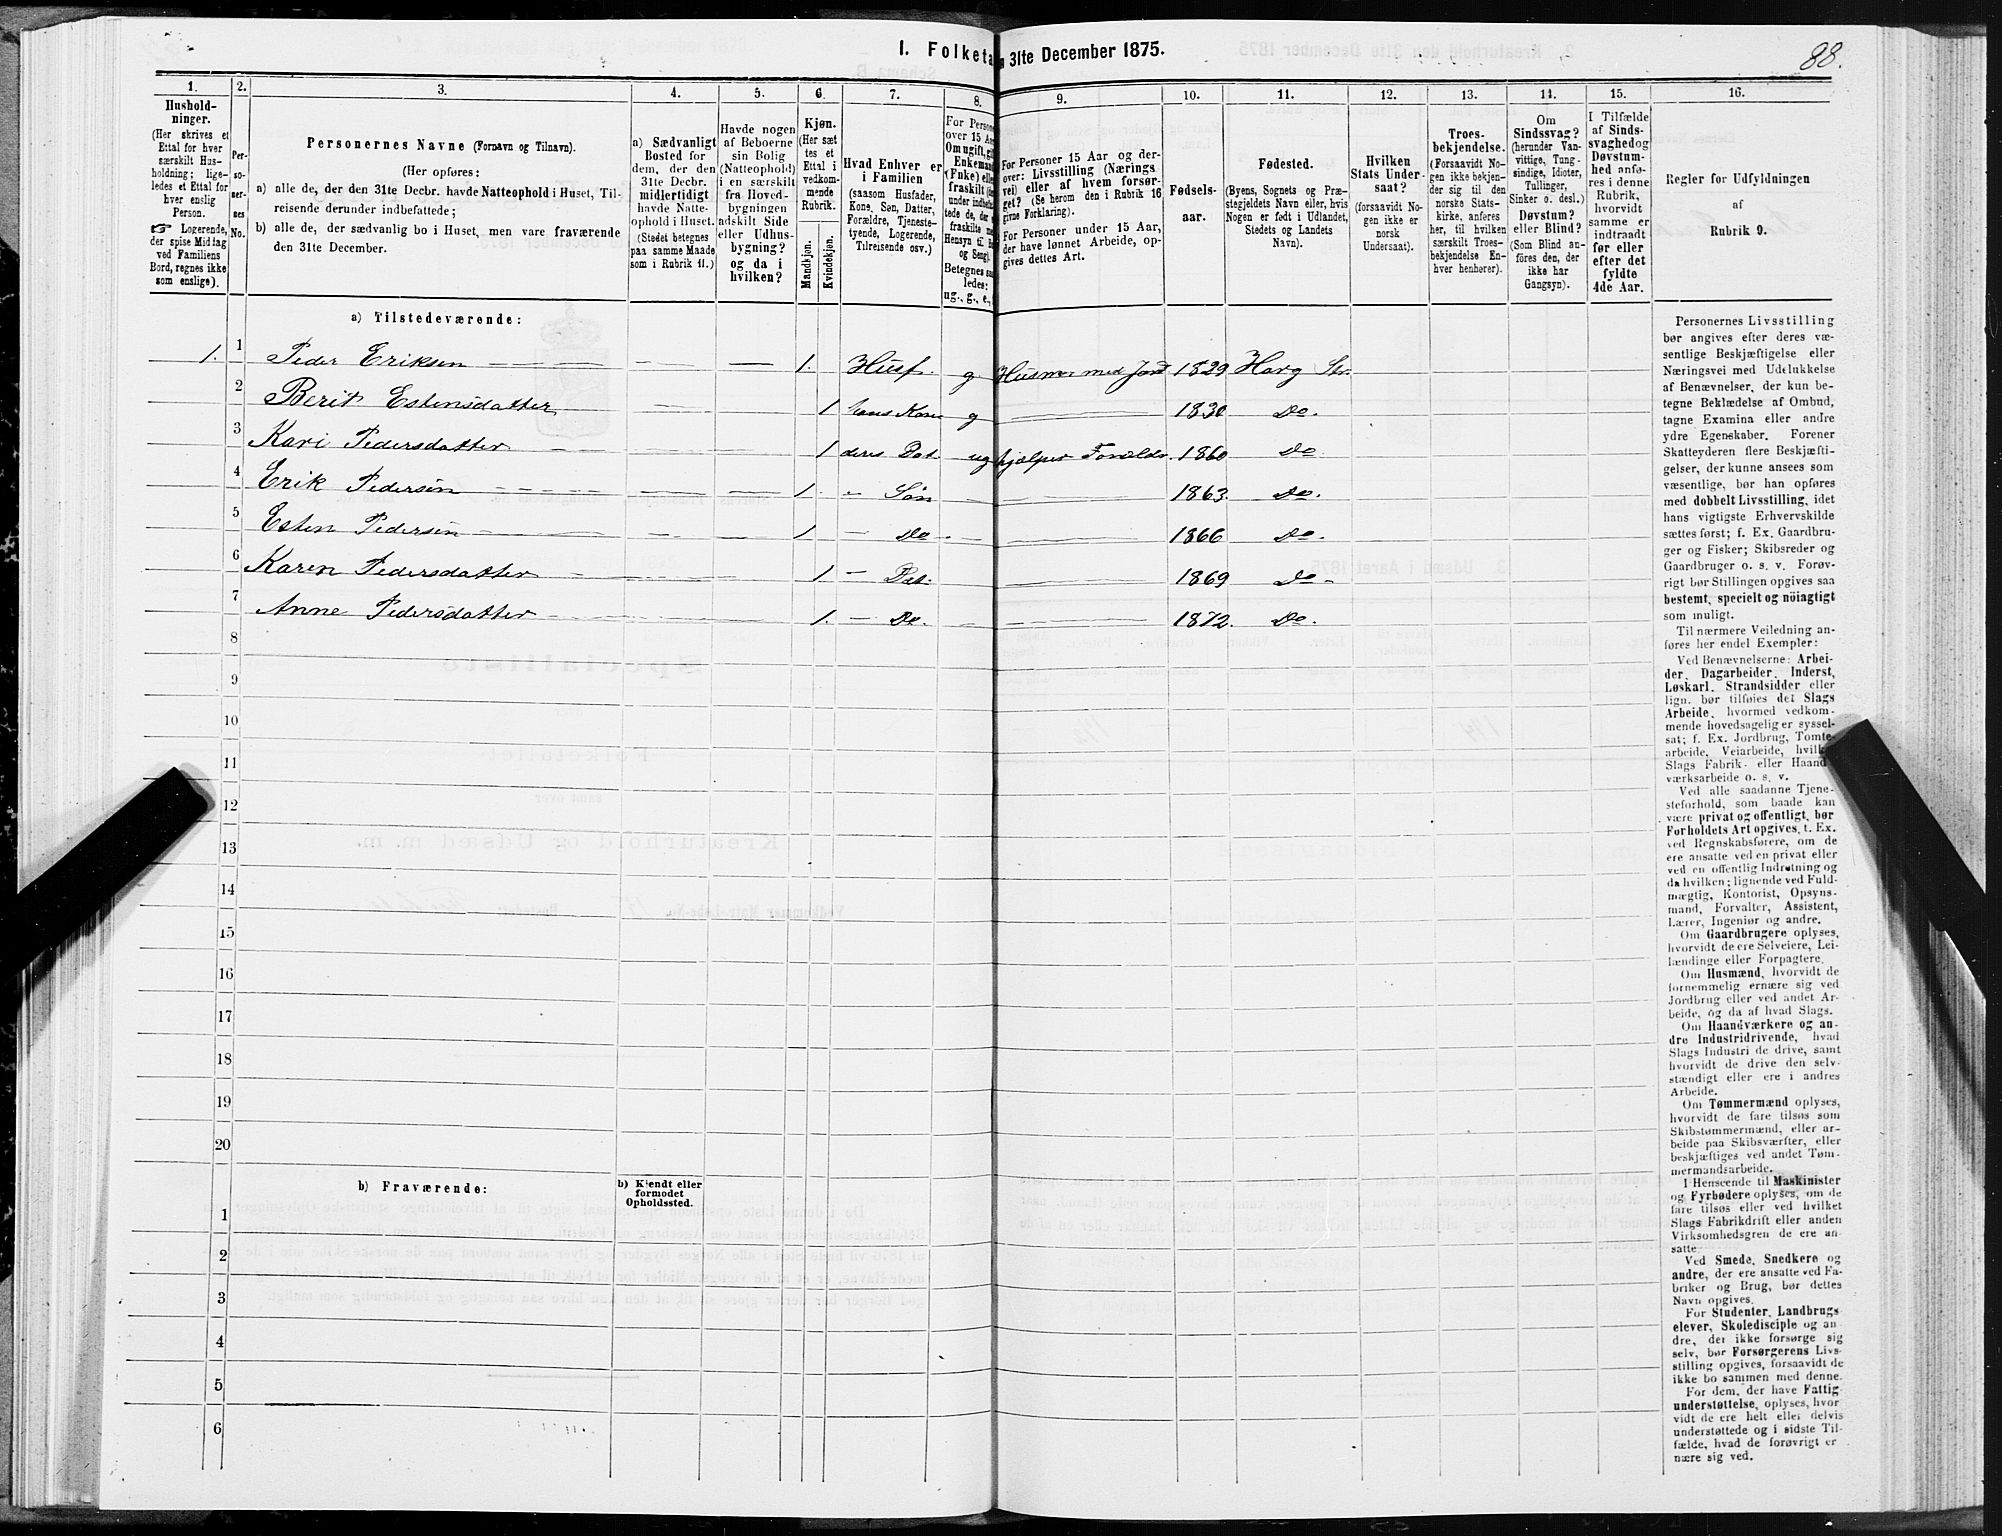 88.
1. Folketa
n 31te December 1875.
1.
2.
3.
4.
5.
6.
7.
8.
9.
10.
11.
12.
13.
14.
15.
16.
Hushold-
ninger.
(Her skrives et
Ettal for hver
særskilt Hus-
holdning; lige-
ledes et Ettal for
hver enslig
Person.
☞ Logerende,
der spise Middag
ved Familiens
Bord, regnes ikke
som enslige).
Per-
so-
ner-
nes
No.
Personernes Navne (Fornavn og Tilnavn).
(Her opføres:
a) alle de, der den 31te Decbr. havde Natteophold i Huset, Til-
reisende derunder indbefattede;
b) alle de, der sædvanlig bo i Huset, men vare fraværende
den 31te December.
a) Sædvanligt
Bosted for
dem, der den
31te Decbr.
midlertidigt
havde Natte-
ophold i Huset.
(Stedet betegnes
paa samme Maade
som i Rubrik 11.)
Havde nogen
af Beboerne
sin Bolig
(Natteophold)
i en særskilt
fra Hoved-
bygningen
adskilt Side
eller Udhus-
bygning?
og da i
hvilken?
Kjøn.
(Her sæt
tes et
Ettal i
vedkom-
mende
Rubrik.
Mandkjøn.
Kvindekjøn.
Hvad Enhver er
i Familien
(saasom Husfader,
Kone, Søn, Datter,
Forældre, Tjeneste-
tyende, Logerende,
Tilreisende osv.)
For Persone
over 15 Aa
Om ugift, gif
Enkemand
(Enke) elle
fraskilt
under
tede de, der
fraskilte
Hensyn til B
og Seng).
Betegnes saa
ledes:
ug., g., e.,
For Personer 15 Aar og der-
over: Livsstilling (Nærings
vei) eller af hvem forsør-
get? (Se herom den i Rubrik 16
givne Forklaring).
For Personer under 15 Aar,
der have lønnet Arbeide, op-
gives dettes Art.
Fødsels-
aar.
Fødested.
(Byens, Sognets og Præ-
stegjeldets Navn eller, hvis
Nogen er født i Udlandet,
Stedets og Landets
Navn).
Hvilken
Stats Under-
saat?
(forsaavidt No-
gen ikke er
norsk
Undersaat).
Troes-
bekjendelse.
(Forsaavidt No-
gen ikke bekjen-
der sig til den
norske Stats-
kirke, anføres
her, til hvilken
særskilt Troes-
bekjendelse En-
hver henhører).
Om
Sindssvag?
(herunder Van-
vittige, Tung-
sindige, Idioter,
Tullinger,
Sinker o. desl.)
Døvstum?
eller Blind?
(Som Blind an-
føres den, der
ikke har
Gangsyn).
I Tilfælde
af Sinds-
svaghed og
Døvstum-
hed anfø-
res i denne
Rubrik,
hvorvidt
samme er
indtraadt
før eller
efter det
fyldte
4de Aar.
Regler for Udfyldningen
af
Rubrik 9.
a) Tilstedeværende:
1. 1 Peder Eriksen 1. Husf. g Husm. med Jord 1829 Horg Str.
2 Berit Estensdatter 1 hans Kone g 1830 Do.
3 Kari Pedersdatter 1 deres Dat. ug hjælper Forældr. 1860 Do
4 Erik Pedersen 1. - Søn 1863. Do.
5 Esten Pedersen 1. - Do. 1866 Do.
6 Karen Pedersdatter 1 - Dat. 1869 Do-
7 Anne Pedersdatter 1. - Do. 1872. Do.
8
9
10
11
12
13
14
15
16
17
18
19
20
b) Fraværende:
b) Kjendt eller
formodet
Opholdssted.
1
2
3
4
5
6
Personernes Livsstilling
bør angives efter deres væ-
sentlige Beskjæftigelse eller
Næringsvei med Udelukkelse
af Benævnelser, der kun be-
tegne Beklædelse af Ombud,
tagne Examina eller andre
ydre Egenskaber. Forener
Skatteyderen flere Beskjæfti-
gelser, der kunne ansees som
væsentlige, bør han opføres
med dobbelt Livsstilling, idet
hans vigtigste Erhvervskilde
sættes først; f. Ex. Gaardbru-
ger og Fisker; Skibsreder og
Gaardbruger o. s. v. Forøv-
rigt bør Stillingen opgives saa
bestemt, specielt og nöiagtigt
som muligt.
Til nærmere Veiledning an-
føres her endel Exempler:
Ved Benævnelserne: Arbei-
der, Dagarbeider, Inderst,
Løskarl, Strandsidder eller
lign. bør tilføies det Slags
Arbeide, hvormed vedkom-
mende hovedsagelig er syssel-
sat; f. Ex. Jordbrug, Tomte-
arbeide, Veiarbeide, hvilket
Slags Fabrik- eller Haand-
værksarbeide o. s. v.
Ved alle saadanne Tjene-
steforhold, som baade kan
være privat og offentligt, bør
Forholdets Art opgives, t. Ex.
ved Regnskabsførere, om de
ere ansatte ved en privat eller
ved en offentlig Indretning og
da hvilken; lignende ved Fuld-
mægtig, Kontorist, Opsyns-
mand, Forvalter, Assistent,
Lærer, Ingeniør og andre.
Om Gaardbrugere oplyses,
hvorvidt de ere Selveiere, Lei-
lændinge eller Forpagtere.
Om Husmænd, hvorvidt de
fornemmelig ernære sig ved
Jordbrug eller ved andet Ar-
beide, og da af hvad Slags.
Om Haandværkere og an-
dre Industridrivende, hvad
Slags Industri de drive, samt
hvorvidt de drive den selv-
stændigt eller ere i andres
Arbeide.
Om Tømmermænd oplyses,
hvorvidt de fare tilsøs som
Skibstømmermænd, eller ar-
beide paa Skibsværfter, eller
beskjæftiges ved andet Tøm-
mermandsarbeide.
I Henseende til Maskinister
og Fyrbødere oplyses, om de
fare tilsøs eller ved hvilket
Slags Fabrikdrift eller anden
Virksomhedsgren de ere an-
satte
Ved Smede, Snedkere og
andre, der ere ansatte ved Fa-
briker og Brug, bør dettes
Navn opgives.
For Studenter, Landbrugs
elever, Skoledisciple og an-
dre, der ikke forsørge sig
selv, bør Forsørgerens Livs-
stilling opgives, forsaavidt de
ikke bo sammen med denne.
For dem, der have Fattig
understøttelse, oplyses, hvor
vidt de ere helt eller delvis
understøttede og i sidste Til-
fælde, hvad de forøvrigt er
nære sig ved.